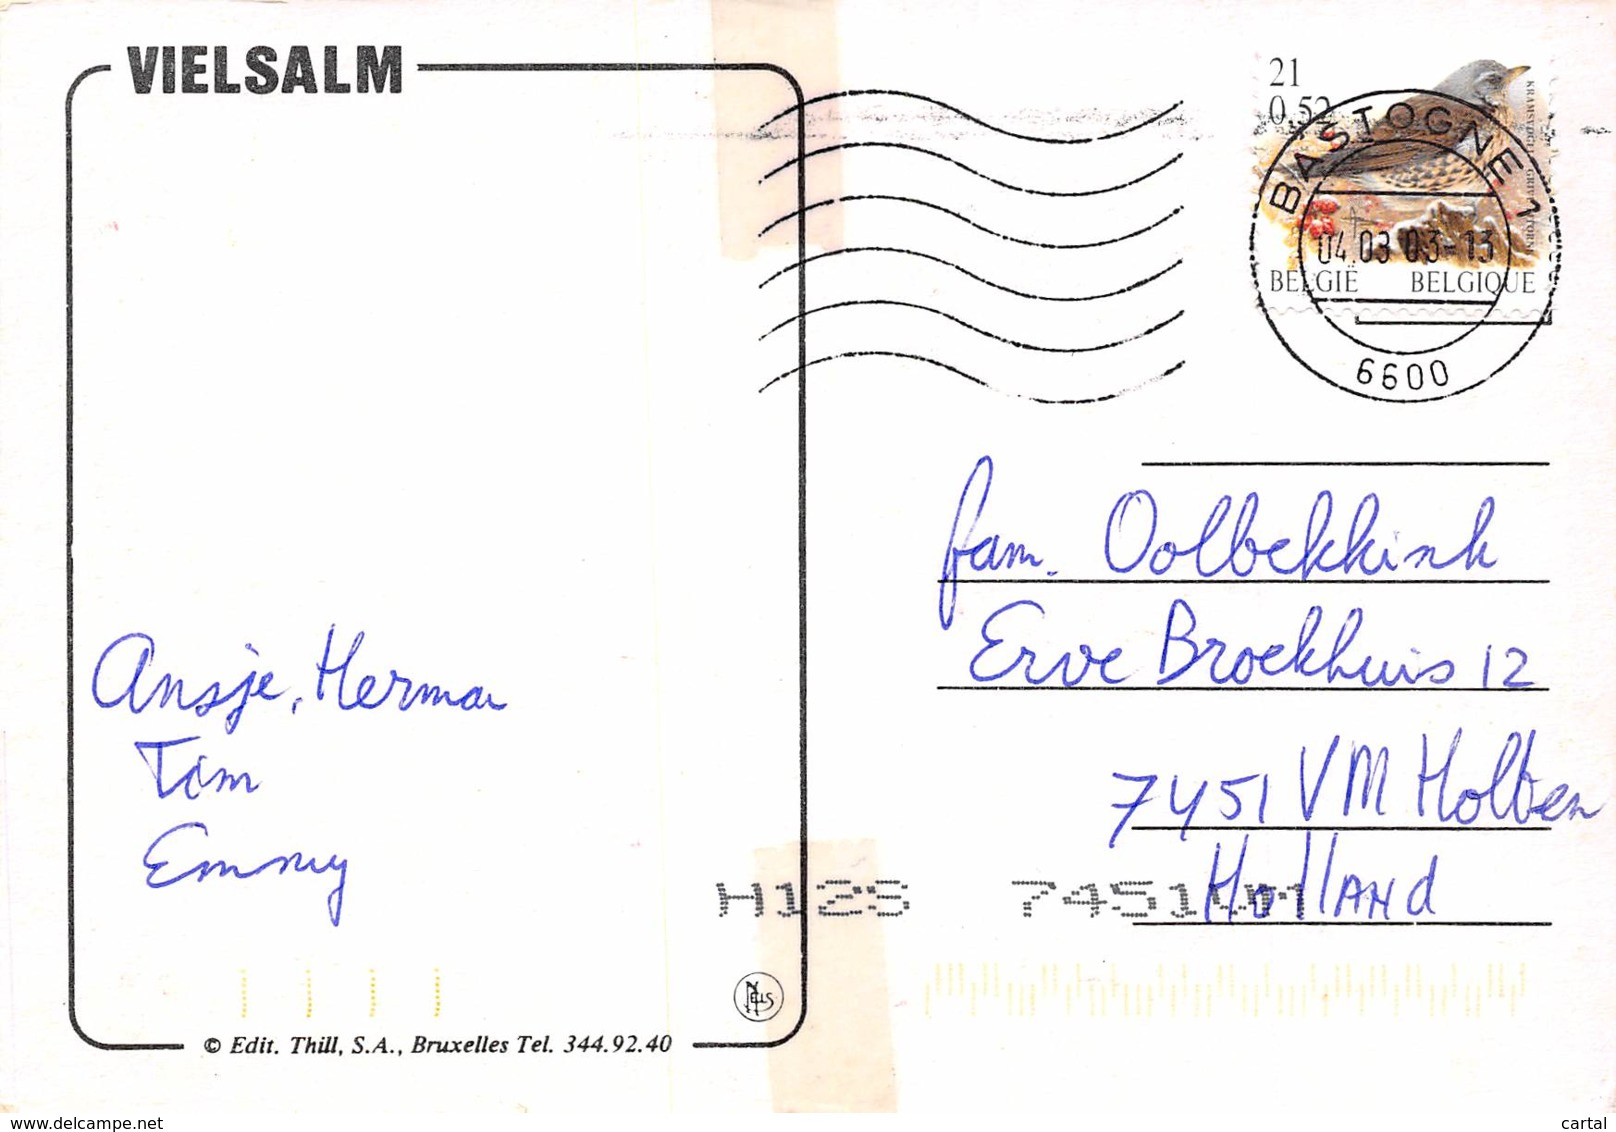 VIELSALM
21
0,52
KRAMSVOGEL GRIVE LITORNE
BELGIË BELGIQUE
BASTOGNE 1
04.03 03-13
6600
fam. Oolbekkink
Erve Broekhuis 12
7451 VM Holten
Holland
Ansje, Herman
Tom
Emmy
H125 7451VM
NELS
© Edit. Thill, S.A., Bruxelles Tel. 344.92.40
www.delcampe.net
cartal